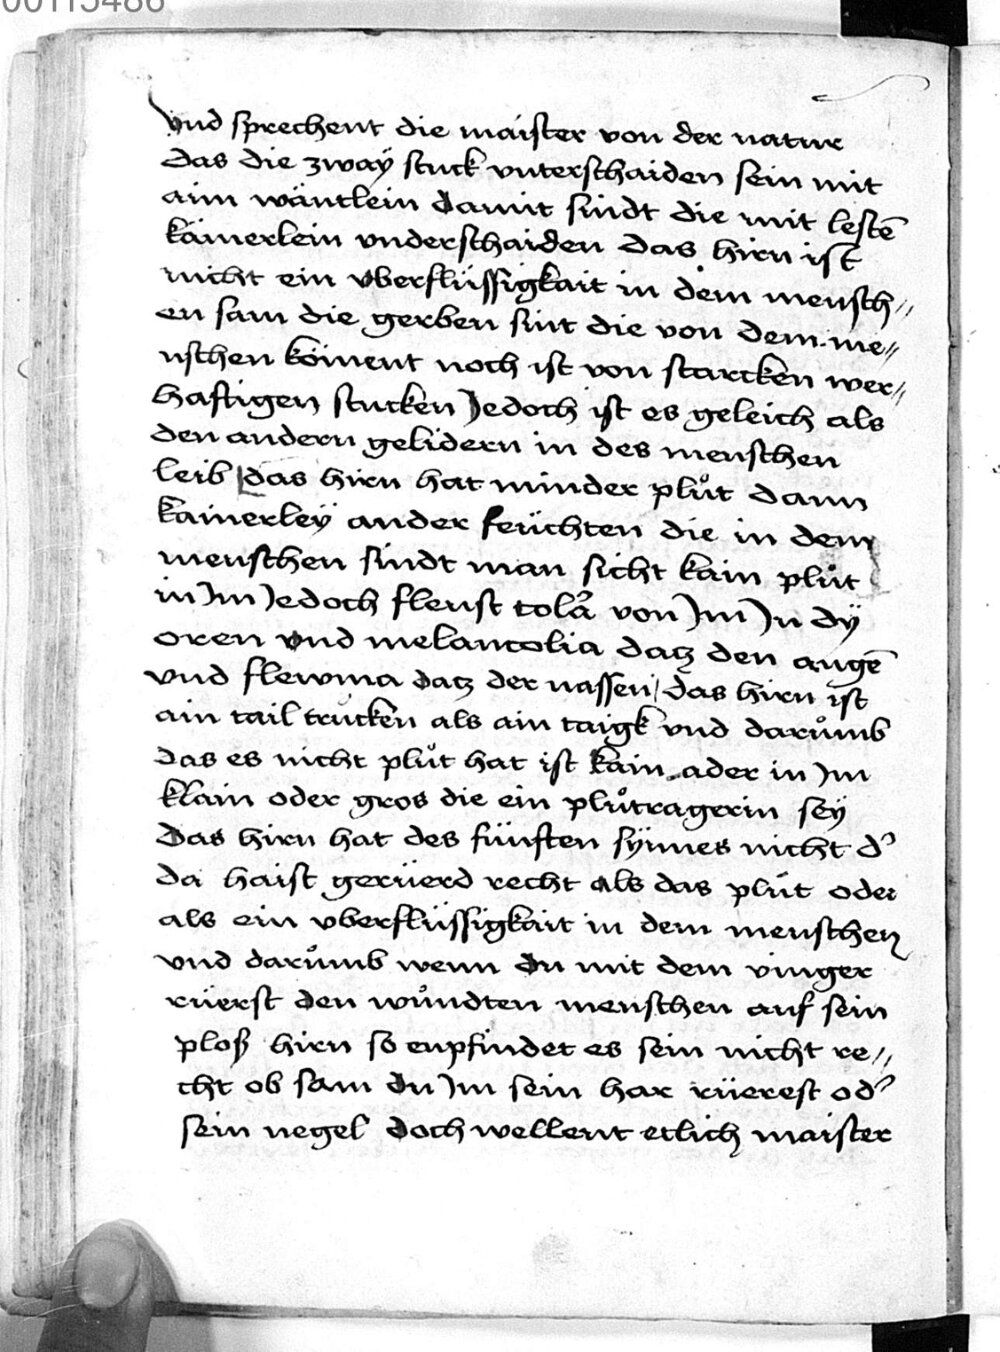 00115486
Vnd sprechent die maister von der natur
das die zwaÿ stuck vnterschaiden sein mit
aim wäntlein damit sindt die mit lestē
kämerlein vnderschaiden das hirn ist
nicht ein vberflüssigkait in dem mensch//
en sam die gerben sint die von dem me//
nschen köment noch ist von starcken wer//
haftigen stucken Jedoch ist es geleich als
den andern gelidern in des menschen
leib das hirn hat minder plůt dann
kainerleÿ ander feüchten die in dem
menschen sindt man sicht kain plůt
in Jm Jedoch fleust colā von Jm Jn dÿ
oren vnd melancolia datz den augē
vnd flewma datz der nassen das hirn ist
ain tail trucken als ain taigk vnd darůmb
das es nicht plůt hat ist kain ader in Jm
klain oder gros die ein plůtragerin seÿ
Das hirn hat des fünften sÿnnes nicht d'
da haist gerüerd recht als das plůt oder
als ein vberflüssigkait in dem menschen
vnd darůmb wenn du mit dem vinger
rüerst den wůndten menschen auf sein
ploß hirn so enpfindet es sein nicht re//
cht ob sam du Jm sein har rüerest od'
sein negel doch wellent etlich maister